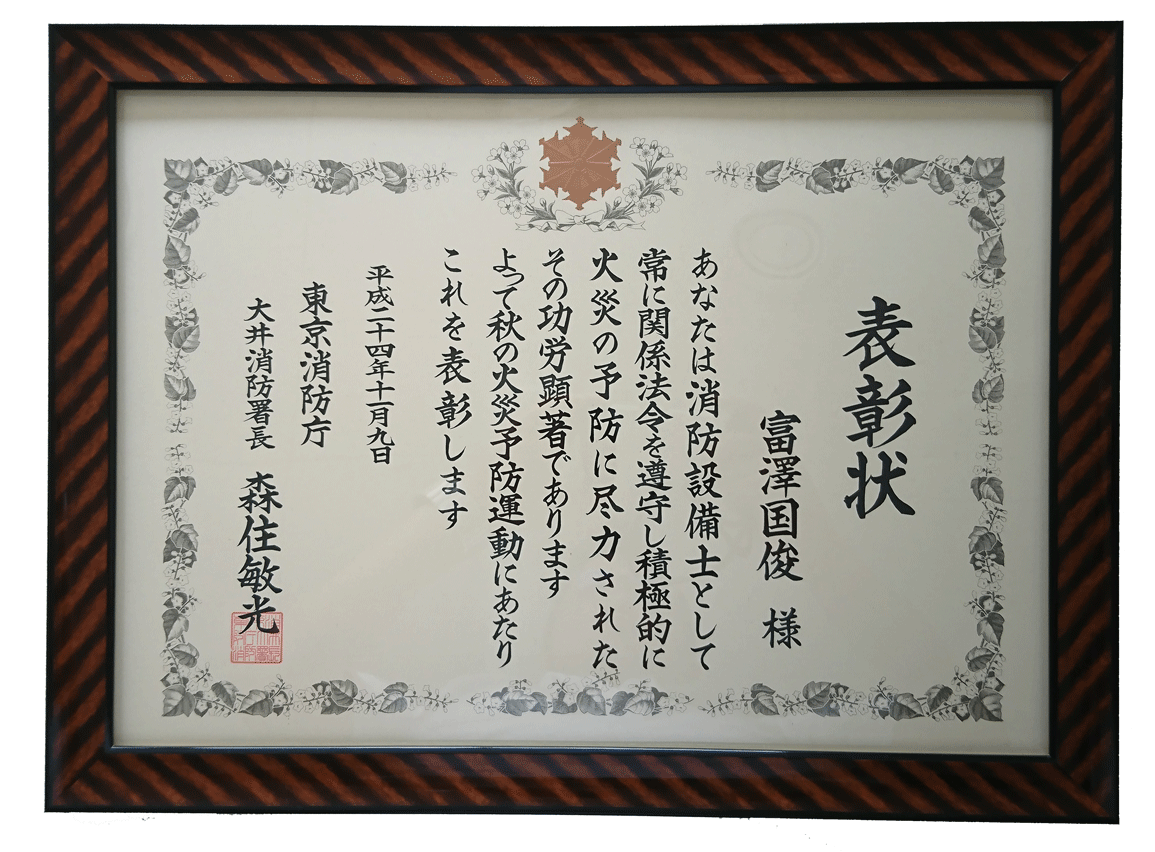 表彰状
富澤国俊 様
あなたは消防設備士として
常に関係法令を遵守し積極的に
火災の予防に尽力された
その功労顕著であります
よって秋の火災予防運動にあたり
これを表彰します
平成二十四年十一月九日
東京消防庁
大井消防署長 森住敏光